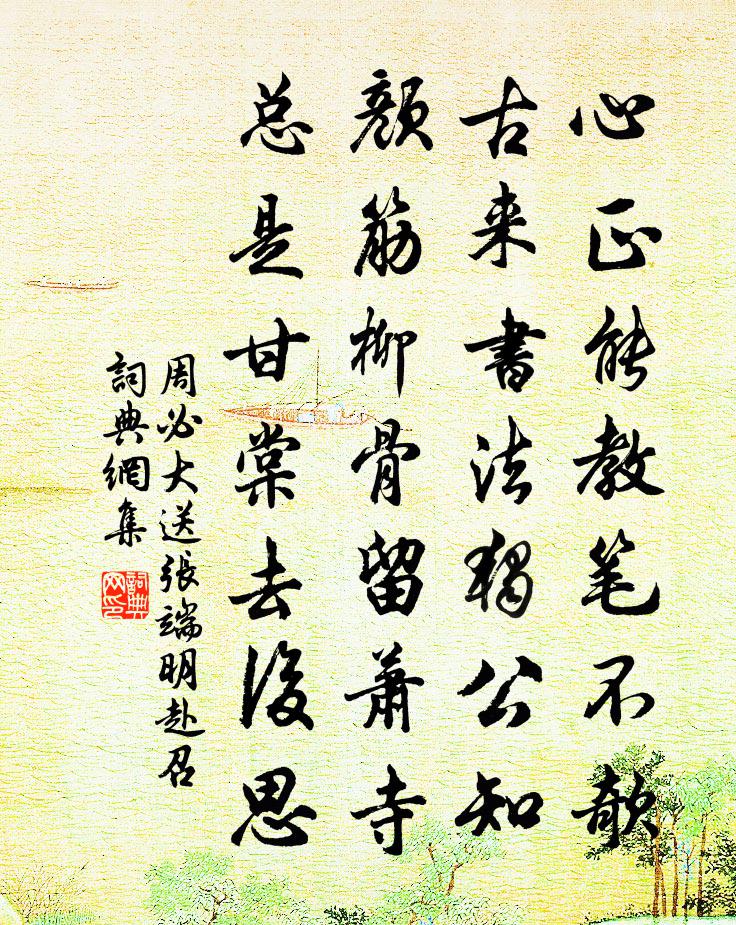 心正能教笔不欹
古来書法獨公知
顔筋柳骨留蕭寺
总是甘棠去後思
周必大送張端明赴召
詞典網集
詞典网印